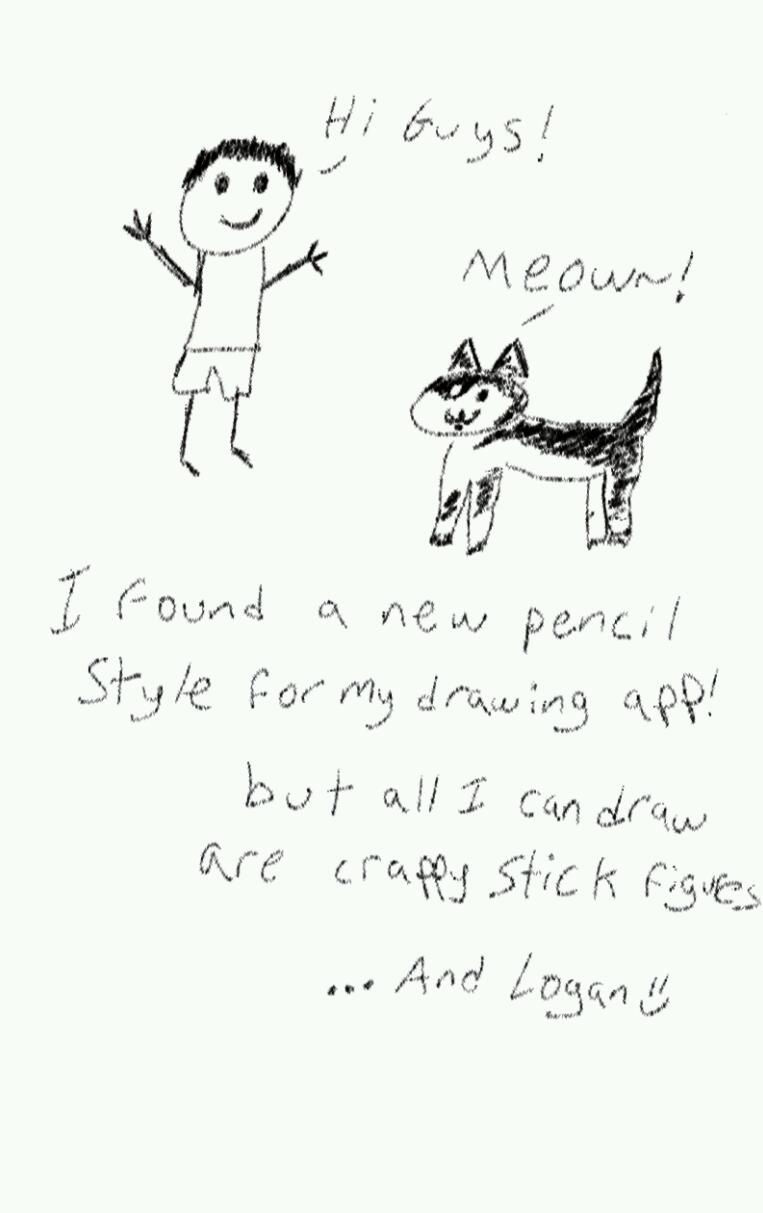 Hi Guys!
Meown!
I found a new pencil
Style for my drawing app!
but all I can draw
are crappy stick figures
... And Logan